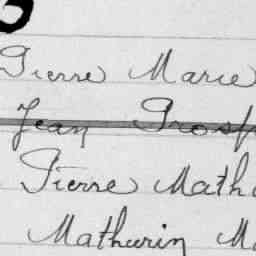 Pierre Marie
Jean Prosp
Pierre Math
Mathurin M